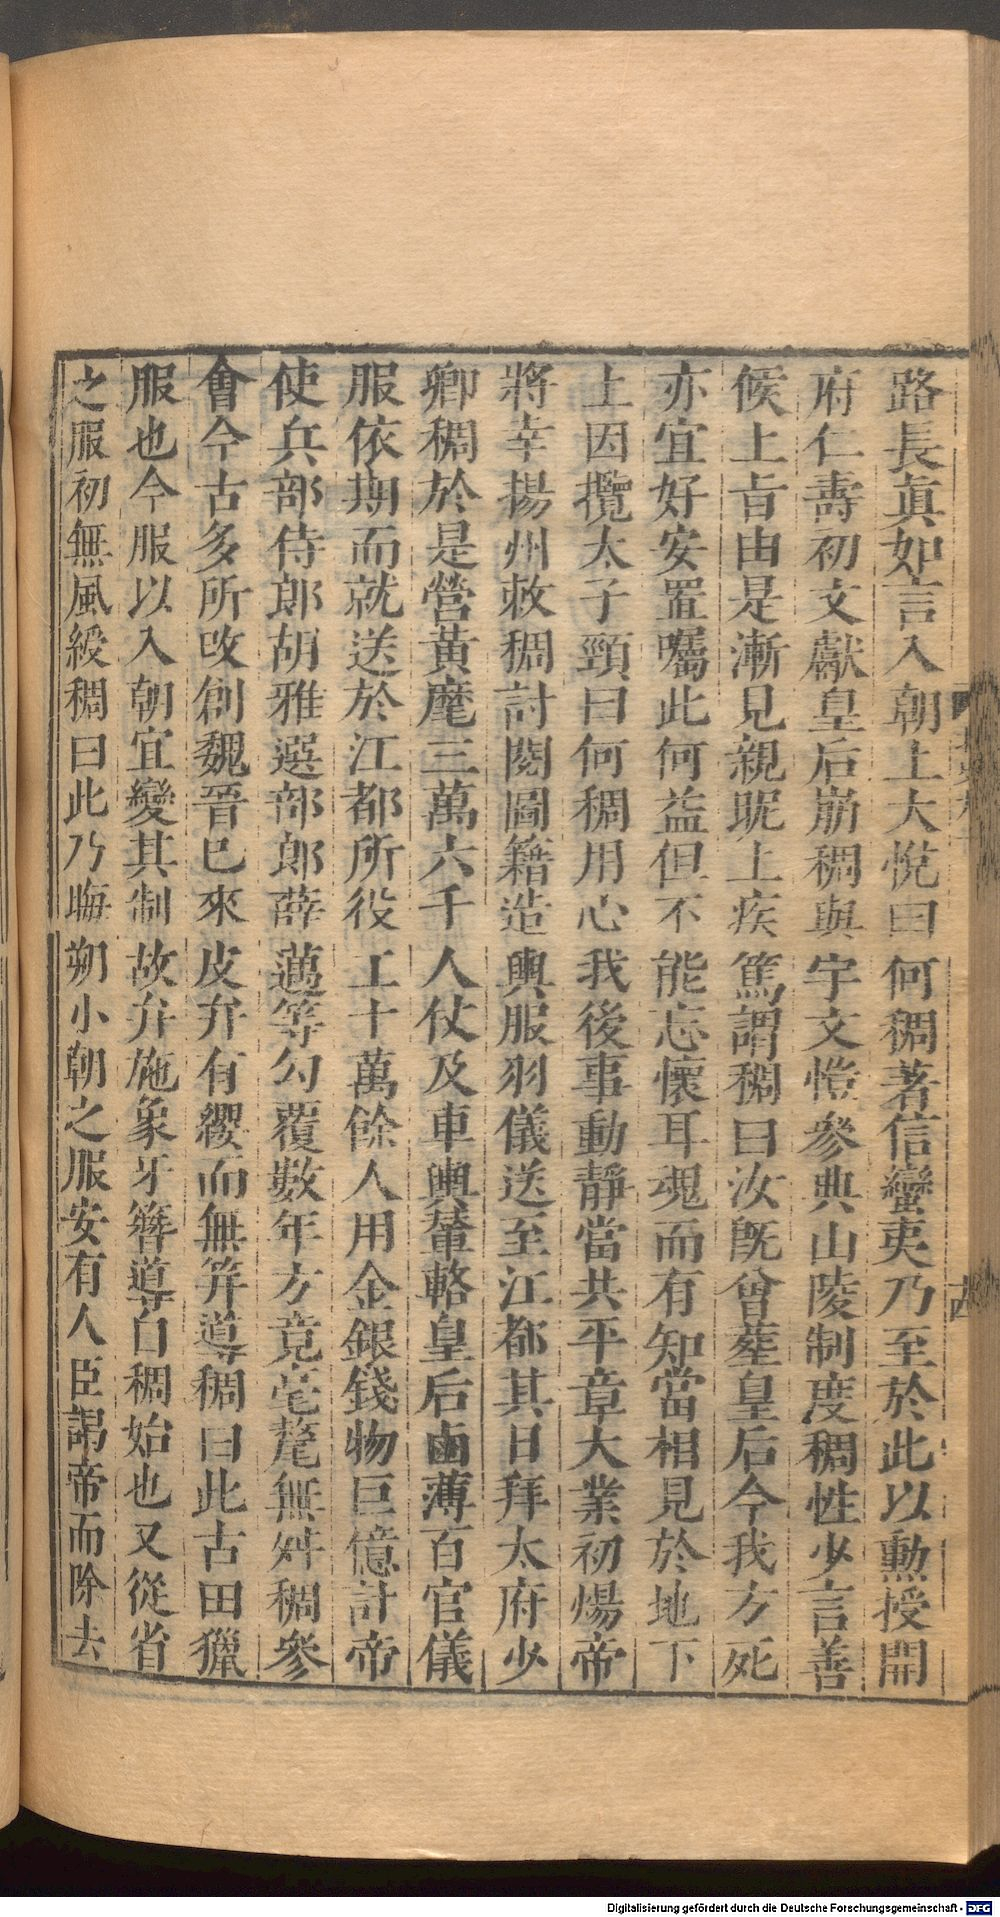 路長眞如言入朝上大悅曰何稠著信蠻夷乃至於此以勳授開
府仁壽初文獻皇后崩稠與宇文愷參典山陵制度稠性少言善
候上旨由是漸見親昵上疾篤謂稠曰汝旣曾葬皇后今我方死
亦宜好安置囑此何益但不能忘懷耳魂而有知當相見於地下
上因攬太子頸曰何稠用心我後事動靜當共平章大業初煬帝
將幸揚州敕稠討閱圖籍造輿服羽儀送至江都其日拜太府少
卿稠於是營黃麾三萬六千人仗及車輿輦輅皇后鹵薄百官儀
服依期而就送於江都所役工十萬餘人用金銀錢物巨億計帝
使兵部侍郎胡雅選部郎薛邁等勾覆數年方竟毫釐無舛稠參
會今古多所改創魏晉已來皮弁有纓而無笄導稠曰此古田獵
服也今服以入朝宜變其制故弁施象牙簪導自稠始也又從省
之服初無風綬稠曰此乃晦朔小朝之服安有人臣謁帝而除去
Digitalisierung gefördert durch die Deutsche Forschungsgemeinschaft - DFG